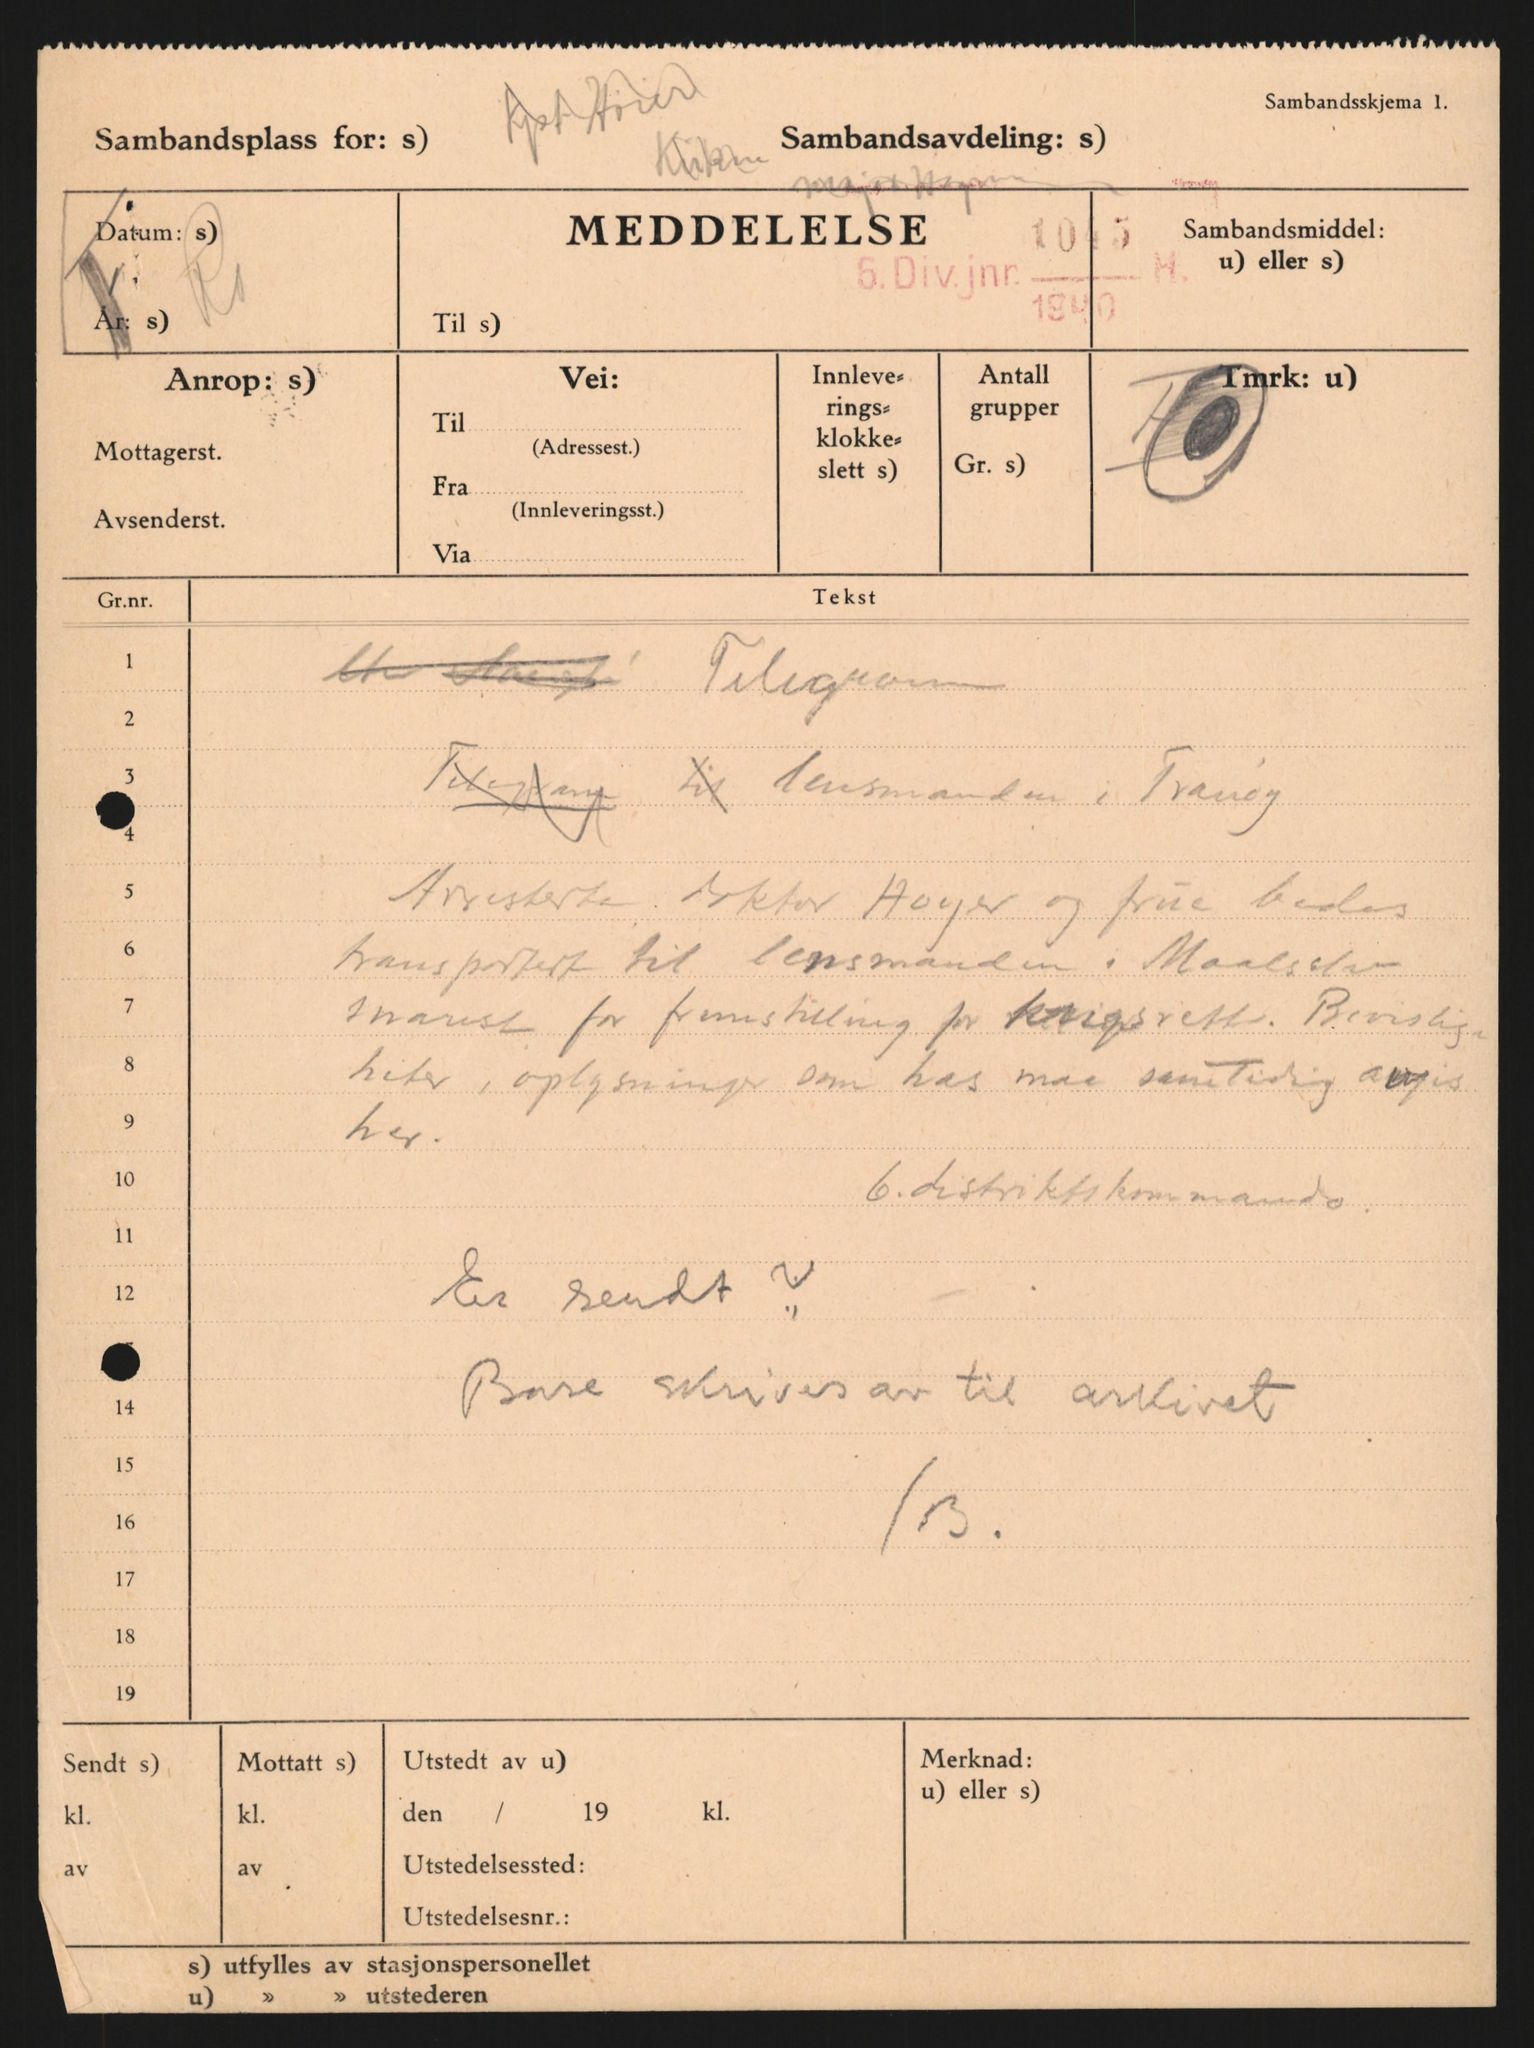 Sambandsskjema 1.
Kpt. Höier
Sambandsplass for: s)
Sambandsavdeling: s)
Datum: s)
År: s)
MEDDELELSE
Til s)
1045
6. Div. jnr. H.
1940
Sambandsmiddel:
u) eller s)
Anrop: s)
Mottagerst.
Avsenderst.
Vei:
Til
(Adressest.)
Fra
(Innleveringsst.)
Via
Innleve-
rings-
klokke-
slett s)
Antall
grupper
Gr. s)
Tmrk: u)
Gr.nr.
Tekst
1 Telegram
2
3 Telegram til lensmanden i Tranöy
4
5 Arresterte doktor Hoyer og frue bedes
6 transportert til lensmanden i Maalselv
7 snarest for fremstilling for krigsrett. Bevislig-
8 heter, oplysninger som has maa samtidig avgis
9 her.
10 6. distriktskommando.
11
12 Er sendt?
Bare skrives av til arkivet
14
15
16 /B.
17
18
19
Sendt s)
kl.
av
Mottatt s)
kl.
av
Utstedt av u)
den / 19 kl.
Utstedelsessted:
Utstedelsesnr.:
Merknad:
u) eller s)
s) utfylles av stasjonspersonellet
u) » » utstederen